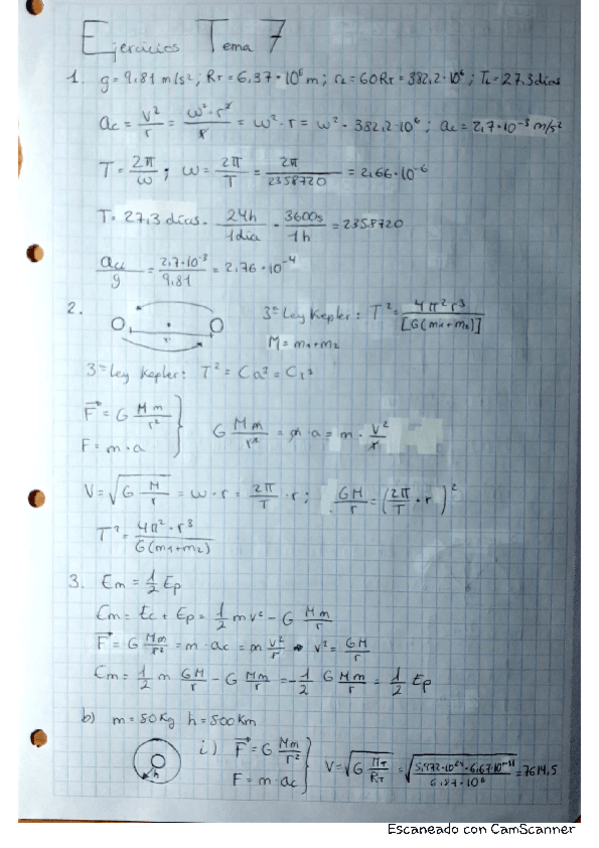 Ejercicios Tema 7
1. g = 9,81 m/s²; R_T = 6,37·10⁶ m; r_L = 60R_T = 382,2·10⁶; T_L = 27,3 días
a_c = v²/r = ω²·r²/r = ω²·r = ω²·382,2·10⁶; a_c = 2,7·10⁻³ m/s²
T = 2π/ω; ω = 2π/T = 2π/2358720 = 2,66·10⁻⁶
T = 27,3 días · 24h/1día · 3600s/1h = 2358720
a_cL/g = 2,7·10⁻³/9,81 = 2,76·10⁻⁴
2. 3ª Ley Kepler: T² = 4π²r³/[G(m₁+m₂)]
r
M = m₁+m₂
3ª Ley Kepler: T² = Ca³ = Cr³
F = G Mm/r²
F = m·a
G Mm/r² = m·a = m·v²/r
V = √(G M/r) = ω·r = 2π/T·r; GM/r = (2π/T·r)²
T² = 4π²·r³/G(m₁+m₂)
3. Em = 1/2 Ep
Em = Ec + Ep = 1/2 mv² - G Mm/r
F = G Mm/r² = m·ac = m v²/r → v² = GM/r
Em = 1/2 m GM/r - G Mm/r = -1/2 G Mm/r = 1/2 Ep
b) m = 50Kg h = 500Km
h
i) F = G Mm/r²
F = m·ac
V = √(G M_T/R_T) = √(5,972·10²⁴·6,67·10⁻¹¹/6,87·10⁶) = 7614,5
Escaneado con CamScanner